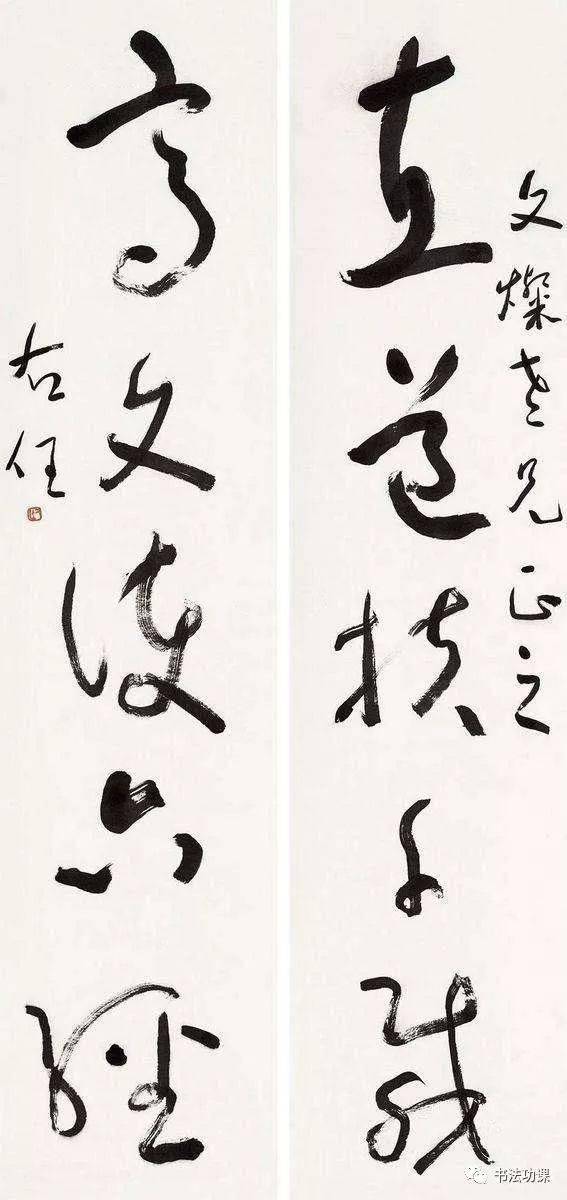 文燦老兄正之
直道扶千載
高文護六經
右任
书法功课